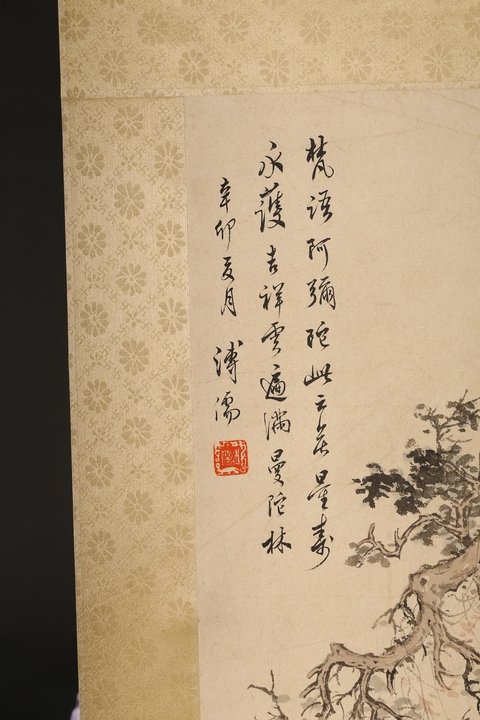 梵語阿彌陀此云無量壽
永護吉祥雲遍滿曼陀林
辛卯夏月
溥儒